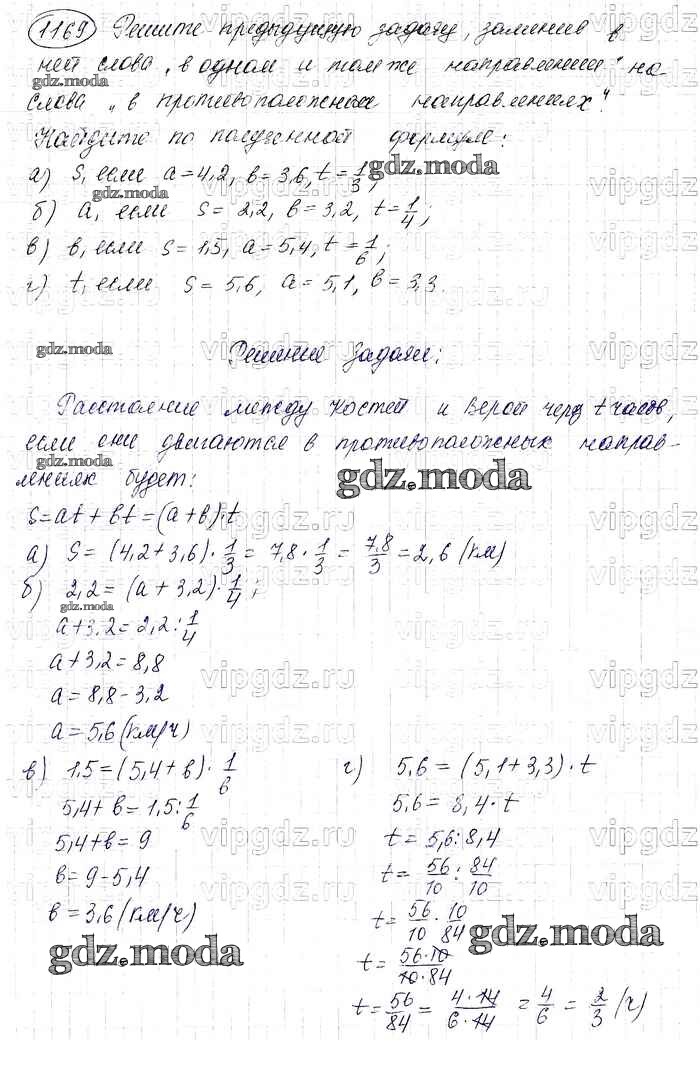 1169 Решите предыдущую задачу, заменив в
ней слова „в одном и том же направлении" на
слова „в противоположных направлениях".
Найдите по полученной формуле:
а) S, если a=4,2, b=3,6, t=1/3;
б) a, если S=2,2, b=3,2, t=1/4;
в) b, если S=1,5, a=5,4, t=1/6;
г) t, если S=5,6, a=5,1, b=3,3.
Решение задачи:
Расстояние между Костей и Верой через t часов,
если они двигаются в противоположных направ-
лениях будет:
S=at+bt=(a+b)·t
а) S=(4,2+3,6)·1/3=7,8·1/3=7,8/3=2,6 (км)
б) 2,2=(a+3,2)·1/4;
a+3,2=2,2:1/4
a+3,2=8,8
a=8,8-3,2
a=5,6 (км/ч)
в) 1,5=(5,4+b)·1/6
5,4+b=1,5:1/6
5,4+b=9
b=9-5,4
b=3,6 (км/ч)
г) 5,6=(5,1+3,3)·t
5,6=8,4·t
t=5,6:8,4
t=56/10:84/10
t=56/10·10/84
t=56·10/10·84
t=56/84=4·14/6·14=4/6=2/3 (ч)
gdz.moda
gdz.moda
gdz.moda
gdz.moda
gdz.moda
gdz.moda
gdz.moda
gdz.moda
gdz.moda
vipgdz.ru